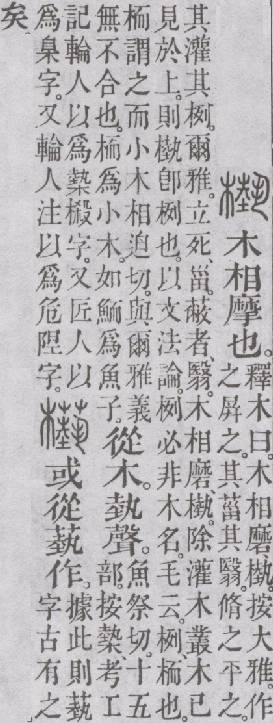 槸木相摩也。釋木曰。木相磨、槸。按大雅。作
之屏之。其菑其翳。脩之平之。
其灌其栵。爾雅。立死、菑。蔽者、翳。木相磨、槸。除灌木叢木已
見於上。則槸卽栵也。以文法論。栵必非木名。毛云。栵、栭也。
栭謂之而小木相迫切。與爾雅義
無不合也。栭爲小木。如鮞爲魚子。從木。埶聲。魚祭切。十五
部。按槷考工
記輪人以爲槷樧字。又匠人以
爲臬字。又輪人注以爲危陧字。
或從蓺作。據此則蓺
字古有之
矣